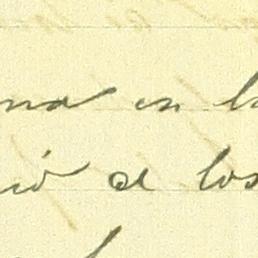 na en l
ió a los